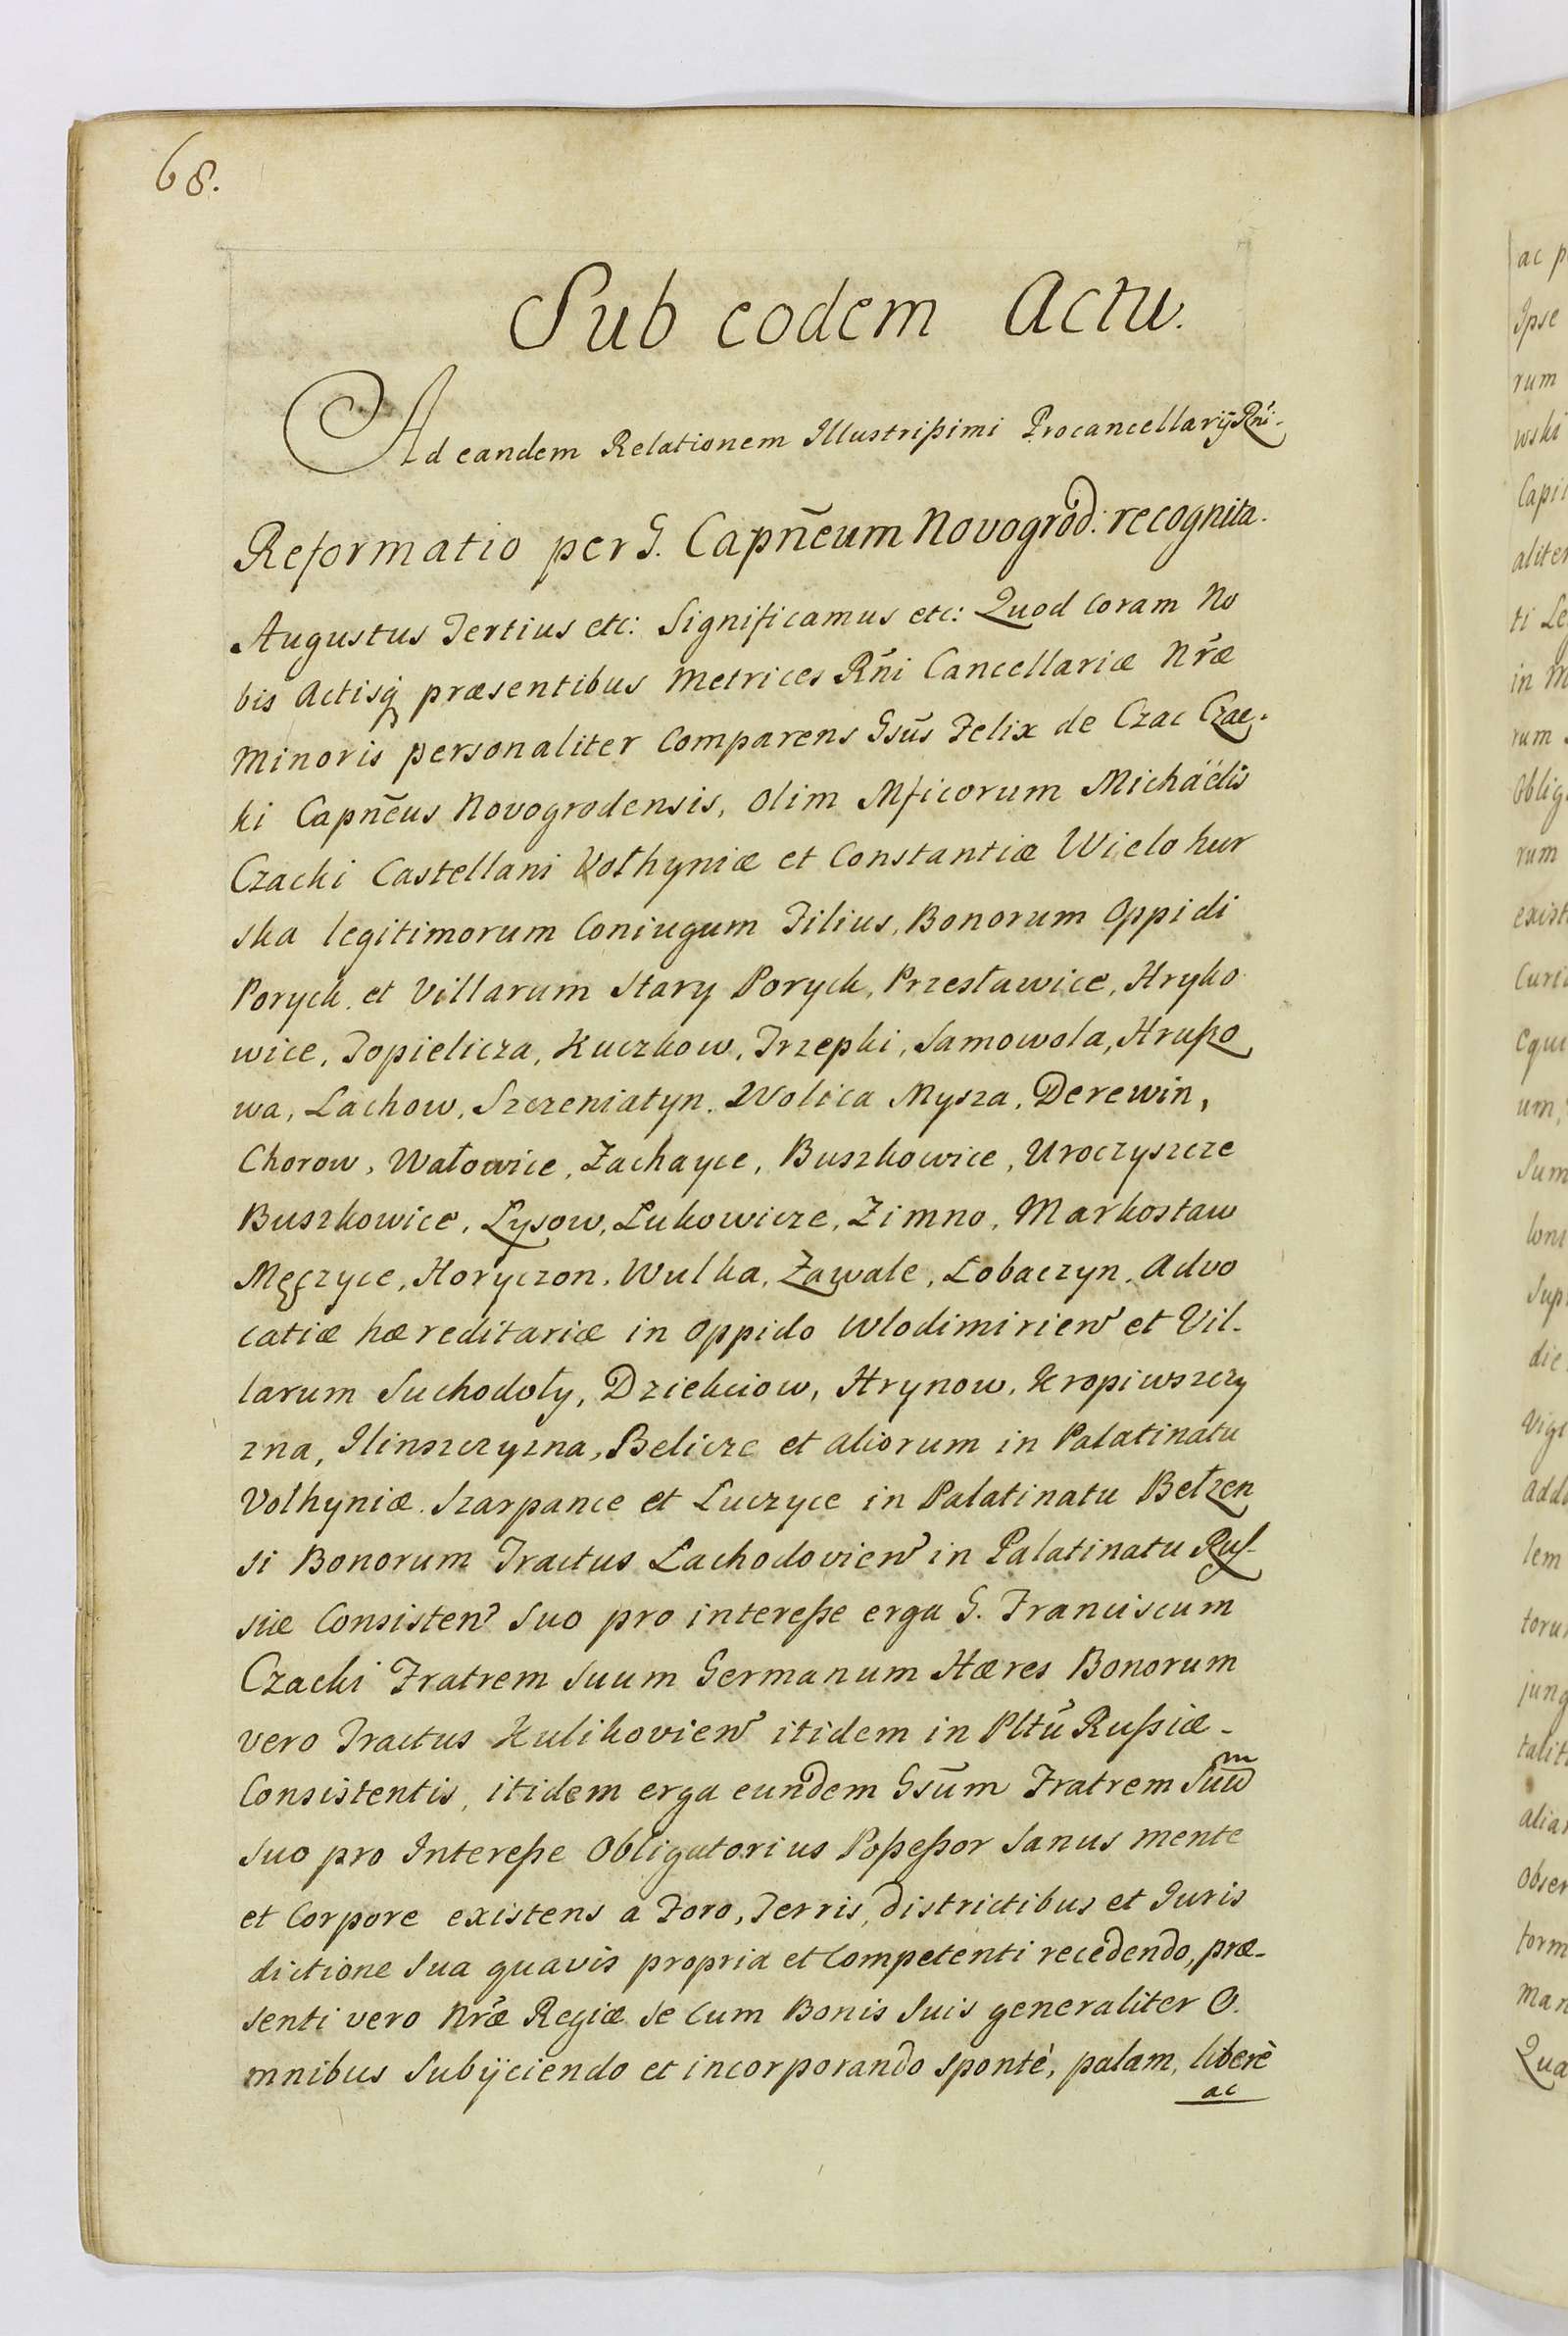 68.
Sub eodem Actu.
Ad eandem Relationem Illustrißimi Procancellarij Rñi.
Reformatio per G. Capñeum Novogrod: recognita.
Augustus Tertius etc: Significamus etc: Quod coram No
bis Actisq præsentibus Metrices Rñi Cancellariæ Nræ
Minoris personaliter Comparens Gsūs Felix de Czac Czac-
ki Capnēus Novogrodensis, olim Mficorum Michäelis
Czacki Castellani Vołhyniæ et Constantiæ Wielohur
ska legitimorum Coniugum Filius, Bonorum Oppidi
Poryck et Villarum Stary Poryck, Przesławice, Hryko
wice, Topielicza, Kuczkow, Trzepki, Samowola, Hrußo
wa, Lachow, Szczeniatyn, Wolica Mysza, Derewin,
Chorow, Wałowice, Zachayce, Buszkowice, Uroczyszcze
Buszkowice, Lysow, Lukowicze, Zimno, Markostaw
Męczyce, Horyczon, Wulka, Zawale, Lobaczyn, Advo
catiæ hæreditariæ in Oppido Wlodimirien et Vil-
larum Suchodoły, Dziekciow, Hrynow, Kropiwszczy
zna, Ilinszczyzna, Belicze et aliorum in Palatinatu
Vołhyniæ. Szarpance et Luczyce in Palatinatu Bełzen
si Bonorum Tractus Lachodovien in Palatinatu Rus-
siæ Consisten Suo pro intereße erga G. Franciscum
Czacki Fratrem Suum Germanum Hæres Bonorum
vero Tractus Kulikovien itidem in Pltũ Rußiæ-
Consistentis, itidem erga eundem Gsūm Fratrem Suūm
Suo pro Intereße Obligatorius Poßeßor Sanus mente
et Corpore existens a Foro, Terris, districtibus et Juris
dictione Sua quavis propria et Competenti recedendo, præ-
senti vero Nræ Regiæ se Cum Bonis Suis generaliter O.
mnibus Subijciendo et incorporando Spontè, palam, liberè
ac
ac p
Ipse
rum
wski
Capi
aliter
ti Le
in M
rum
Oblig
rum
exist
Curi
Equi
um,
Sum
loni
Sup
die
Vigi
Add
lem
toru
jung
talit
aliar
Obser
torm
Man
Qua